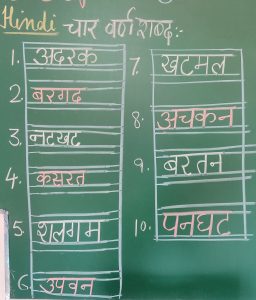 Hindi चार वर्ण शब्द :-
1. अदरक
2. बरगद
3. नटखट
4. कसरत
5. शलगम
6. उपवन
7. खटमल
8. अचकन
9. बरतन
10. पनघट